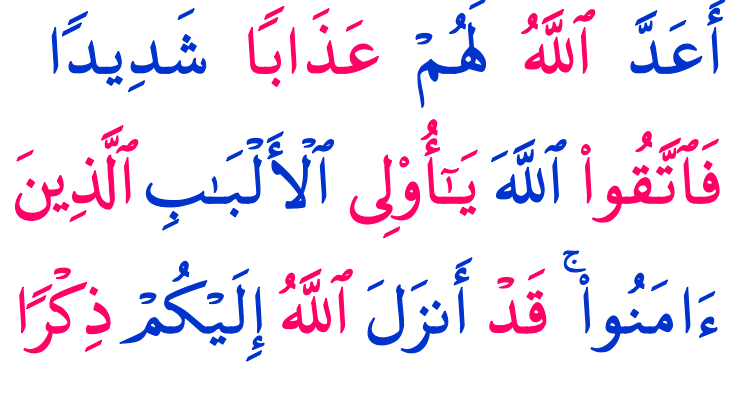 أَعَدَّ ٱللَّهُ لَهُمْ عَذَابًا شَدِيدًا
فَٱتَّقُوا۟ ٱللَّهَ يَـٰٓأُو۟لِى ٱلْأَلْبَـٰبِ ٱلَّذِينَ
ءَامَنُوا۟ ۚ قَدْ أَنزَلَ ٱللَّهُ إِلَيْكُمْ ذِكْرًا